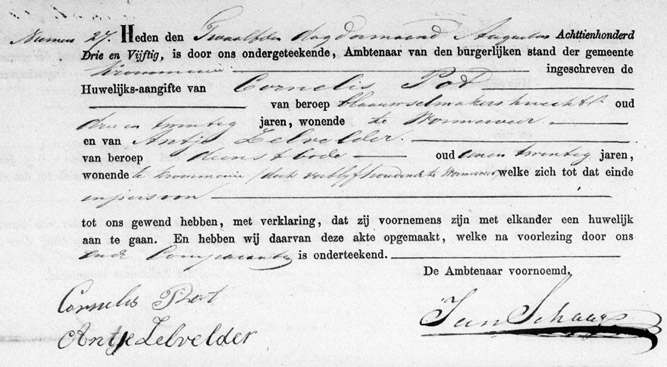 Numero 27. Heden den Twaalfden dag der maand Augustus Achttienhonderd
Drie en Vijftig, is door ons ondergeteekende, Ambtenaar van den burgerlijken stand der gemeente
Krommenie ingeschreven de
Huwelijks-aangifte van Cornelis Pot
van beroep blaauwselmakersknecht oud
drie en twintig jaren, wonende te Wormerveer
en van Antje Zelvelder
van beroep dienstbode oud eenen twintig jaren,
wonende te Krommenie, doch verblijfhoudende te Wormerveer welke zich tot dat einde
in persoon
tot ons gewend hebben, met verklaring, dat zij voornemens zijn met elkander een huwelijk
aan te gaan. En hebben wij daarvan deze akte opgemaakt, welke na voorlezing door ons
en de Comparanten is onderteekend.
De Ambtenaar voornoemd,
Cornelis Pot
Antje Zelvelder
Jan Schaap